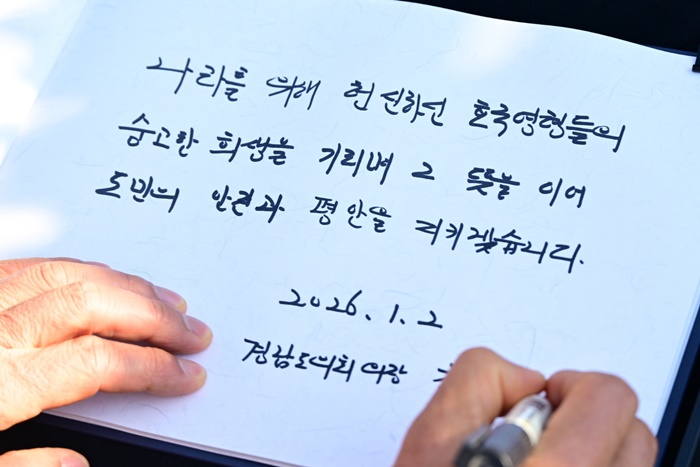 나라를 위해 헌신하신 호국영령들의
숭고한 희생을 기리며 그 뜻을 이어
도민의 안전과 평안을 지키겠습니다.
2026. 1. 2
경남도의회 의장